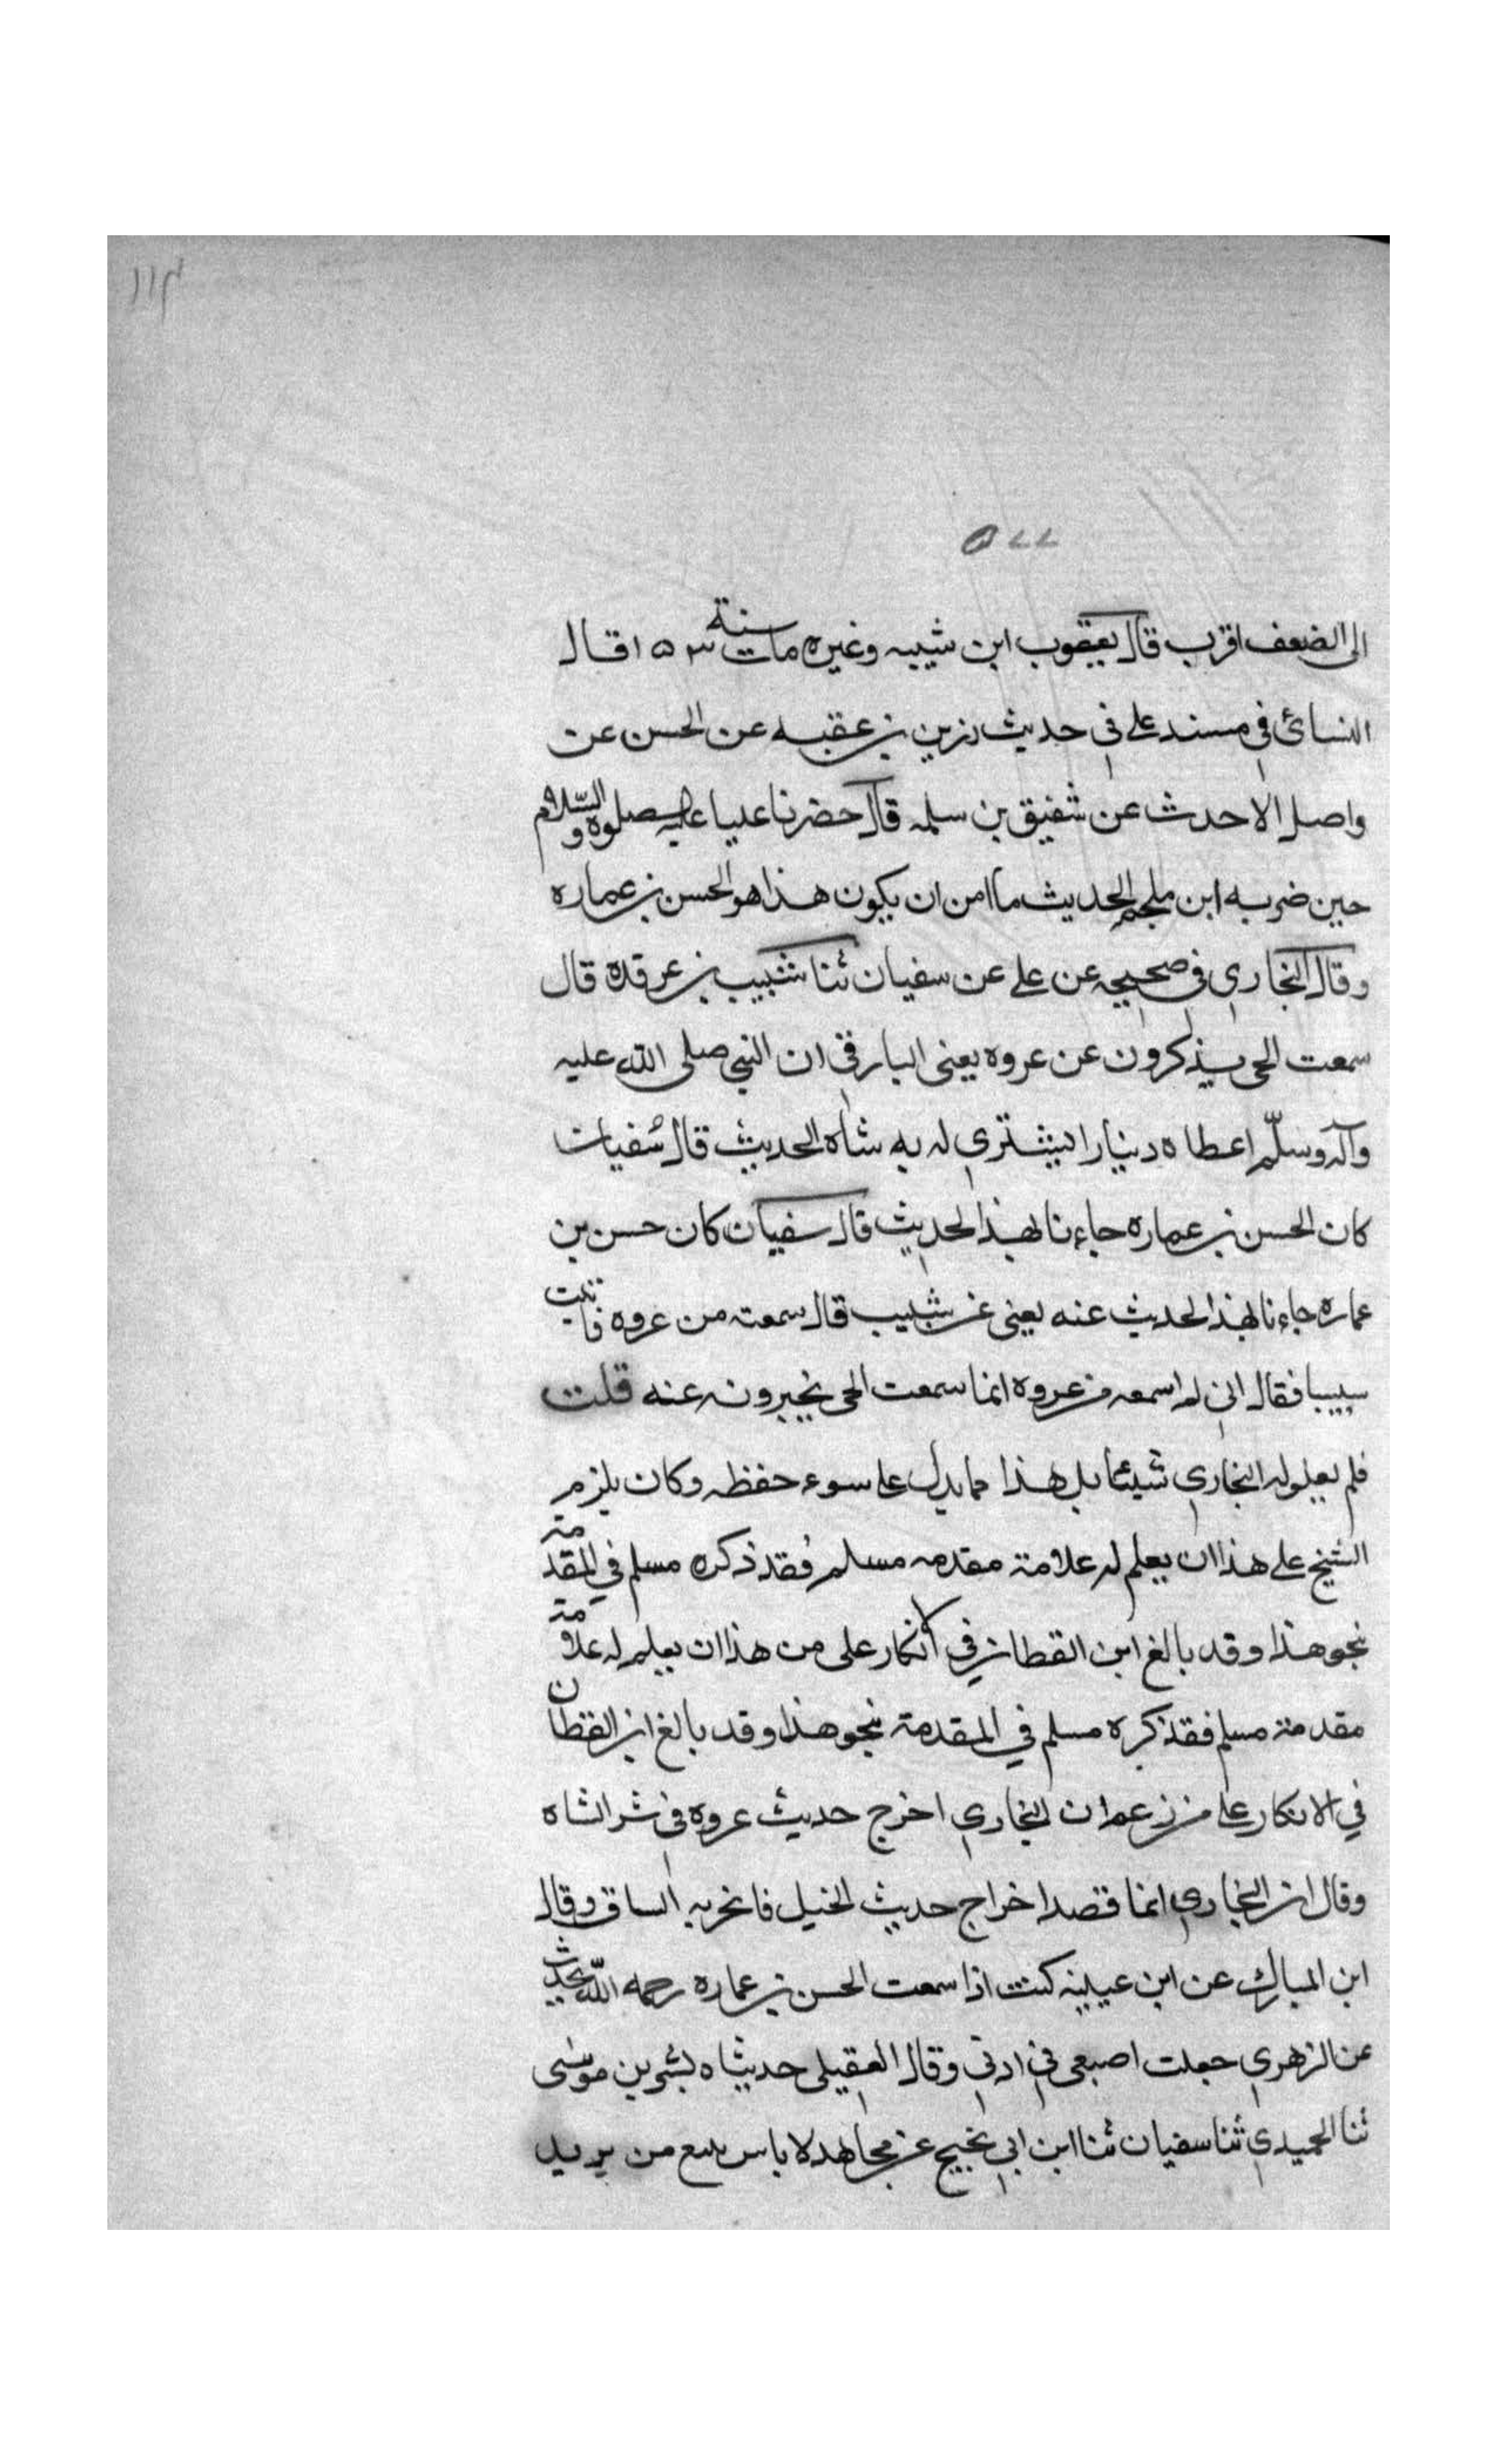 ١١٣
٥٧٧
الى الضعف اقرب قال يعقوب ابن شيبه وغيره مات سنة ١٥٣ قال
النسائي في مسند علي في حديث رزين بن عقبه عن الحسن عن
واصل الاحدث عن شفيق بن سلمه قال حضرنا عليا عليه صلوة والسّلام
حين ضربه ابن ملجم الحديث ما امن ان يكون هذا هو الحسن بن عماره
وقال البخاري في صحيحه عن علي عن سفيان ثنا شبيب بن عرقده قال
سمعت الحي يذكرون عن عروه يعنى البارقي ان النبي صلى الله عليه
وآله وسلّم اعطاه دينارا ليشتري له به شاه الحديث قال سفيان
كان الحسن بن عماره جاءنا بهذا الحديث قال سفيان كان حسن بن
عماره جاءنا بهذا الحديث عنه يعنى عن شبيب قال سمعته من عروه فاتيت
سبيبا فقال اني لم اسمعه من عروه انما سمعت الحي يخبرونه عنه قلت
فلم يعلوله البخاري شيئا بل هذا مما يدل على سوء حفظه وكان يلزم
الشيخ على هذا ان يعلم له علامة مقدمه مسلم فقد ذكره مسلم في المقدمة
نحو هذا وقد بالغ ابن القطان في الانكار على من هذا ان يعلم له علامة
مقدمة مسلم فقد ذكره مسلم في المقدمة نحو هذا وقد بالغ ابن القطان
في الانكار على من زعم ان البخاري اخرج حديث عروه في شر الشاه
وقال ان البخاري انما قصد اخراج حديث الخيل فانخربه الساق وقال
ابن المبارك عن ابن عيينه كنت اذا سمعت الحسن بن عماره رحمه اللّه يحدث
عن الزهري جعلت اصبعى في ادنى وقال العقيلي حديثاه بشر بن موسى
ثنا الحميدي ثنا سفيان ثنا ابن ابي نجيح عن مجاهد لا باس ببيع من يريد